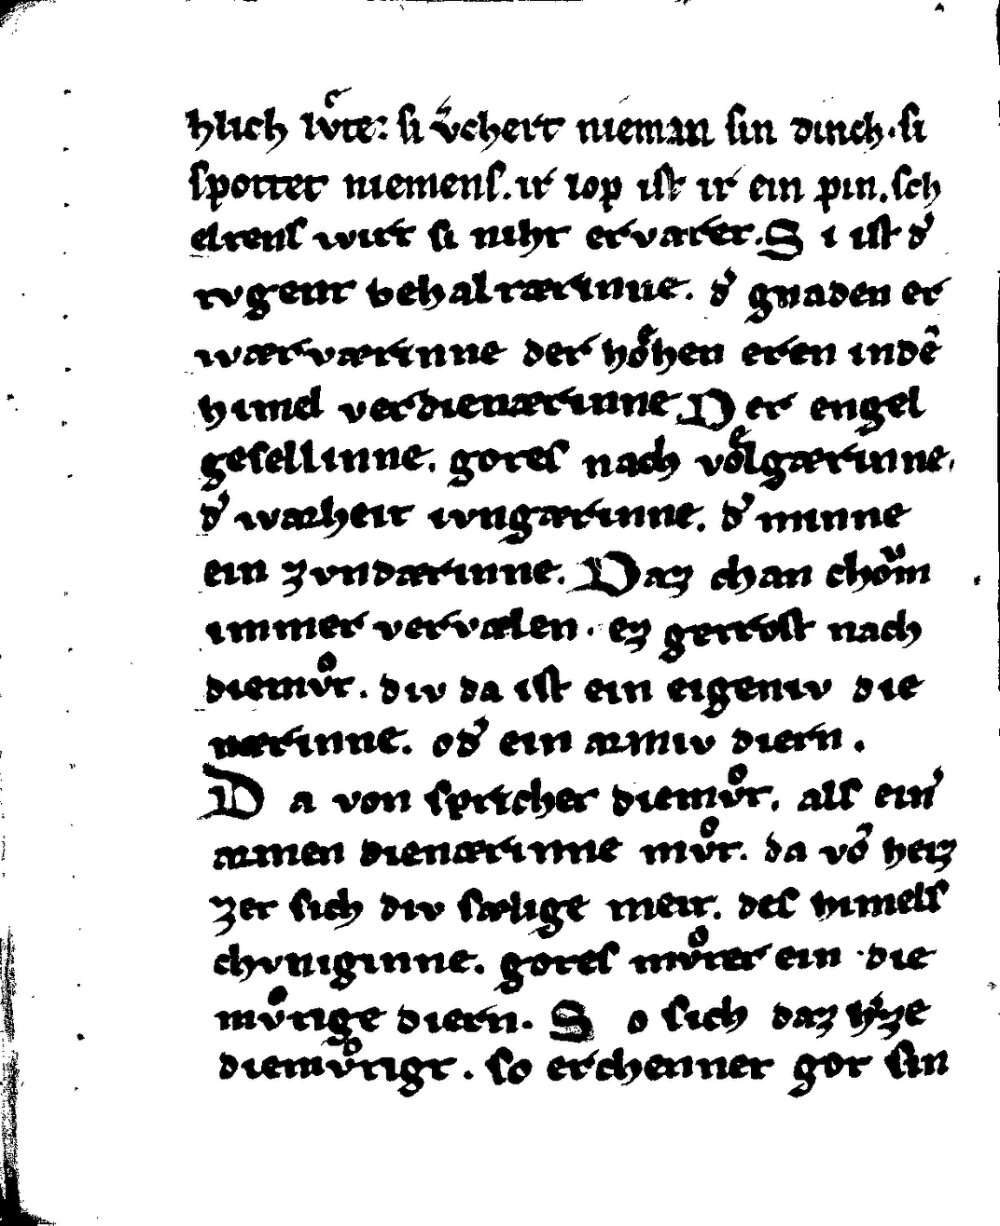 hlich lvͤte: si v̓chert nieman sin dinch. si
spottet niemens. ir lop ist ir ein pin. sch
eltens wirt si niht erværet. S i ist d̓
tvgent behaltærinne. d̓ gnaden er
wærværinne der hoͤhen eren in dē
himel verdienærinne D er engel
gesellinne. gotes nach volgærinne.
d̓ warheit ivngærinne. d̓ minne
ein zvndærinne. Daz chan chom̄
immer vervælen. ez getrost nach
diemvͦt. div da ist ein eigeniv die
nærinne. od̓ ein armiv diern.
D a von sprichet diemvͦt. als ein̓
armen dienærinne mvͦt. da vō heiz
zet sich div sælige meit. des himels
chvniginne. gotes mvͦter ein die
mvͦtige diern. S o sich daz h̓ze
diemvͦtigt. so erchennet got sin